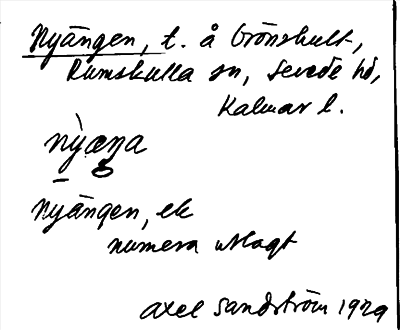 Nyängen, t. å Grönshult,
Rumskulla sn, Sevede hd,
Kalmar l.
nỳæŋa
Nyängen, ek
numera utlagt
Axel Sandström 1929